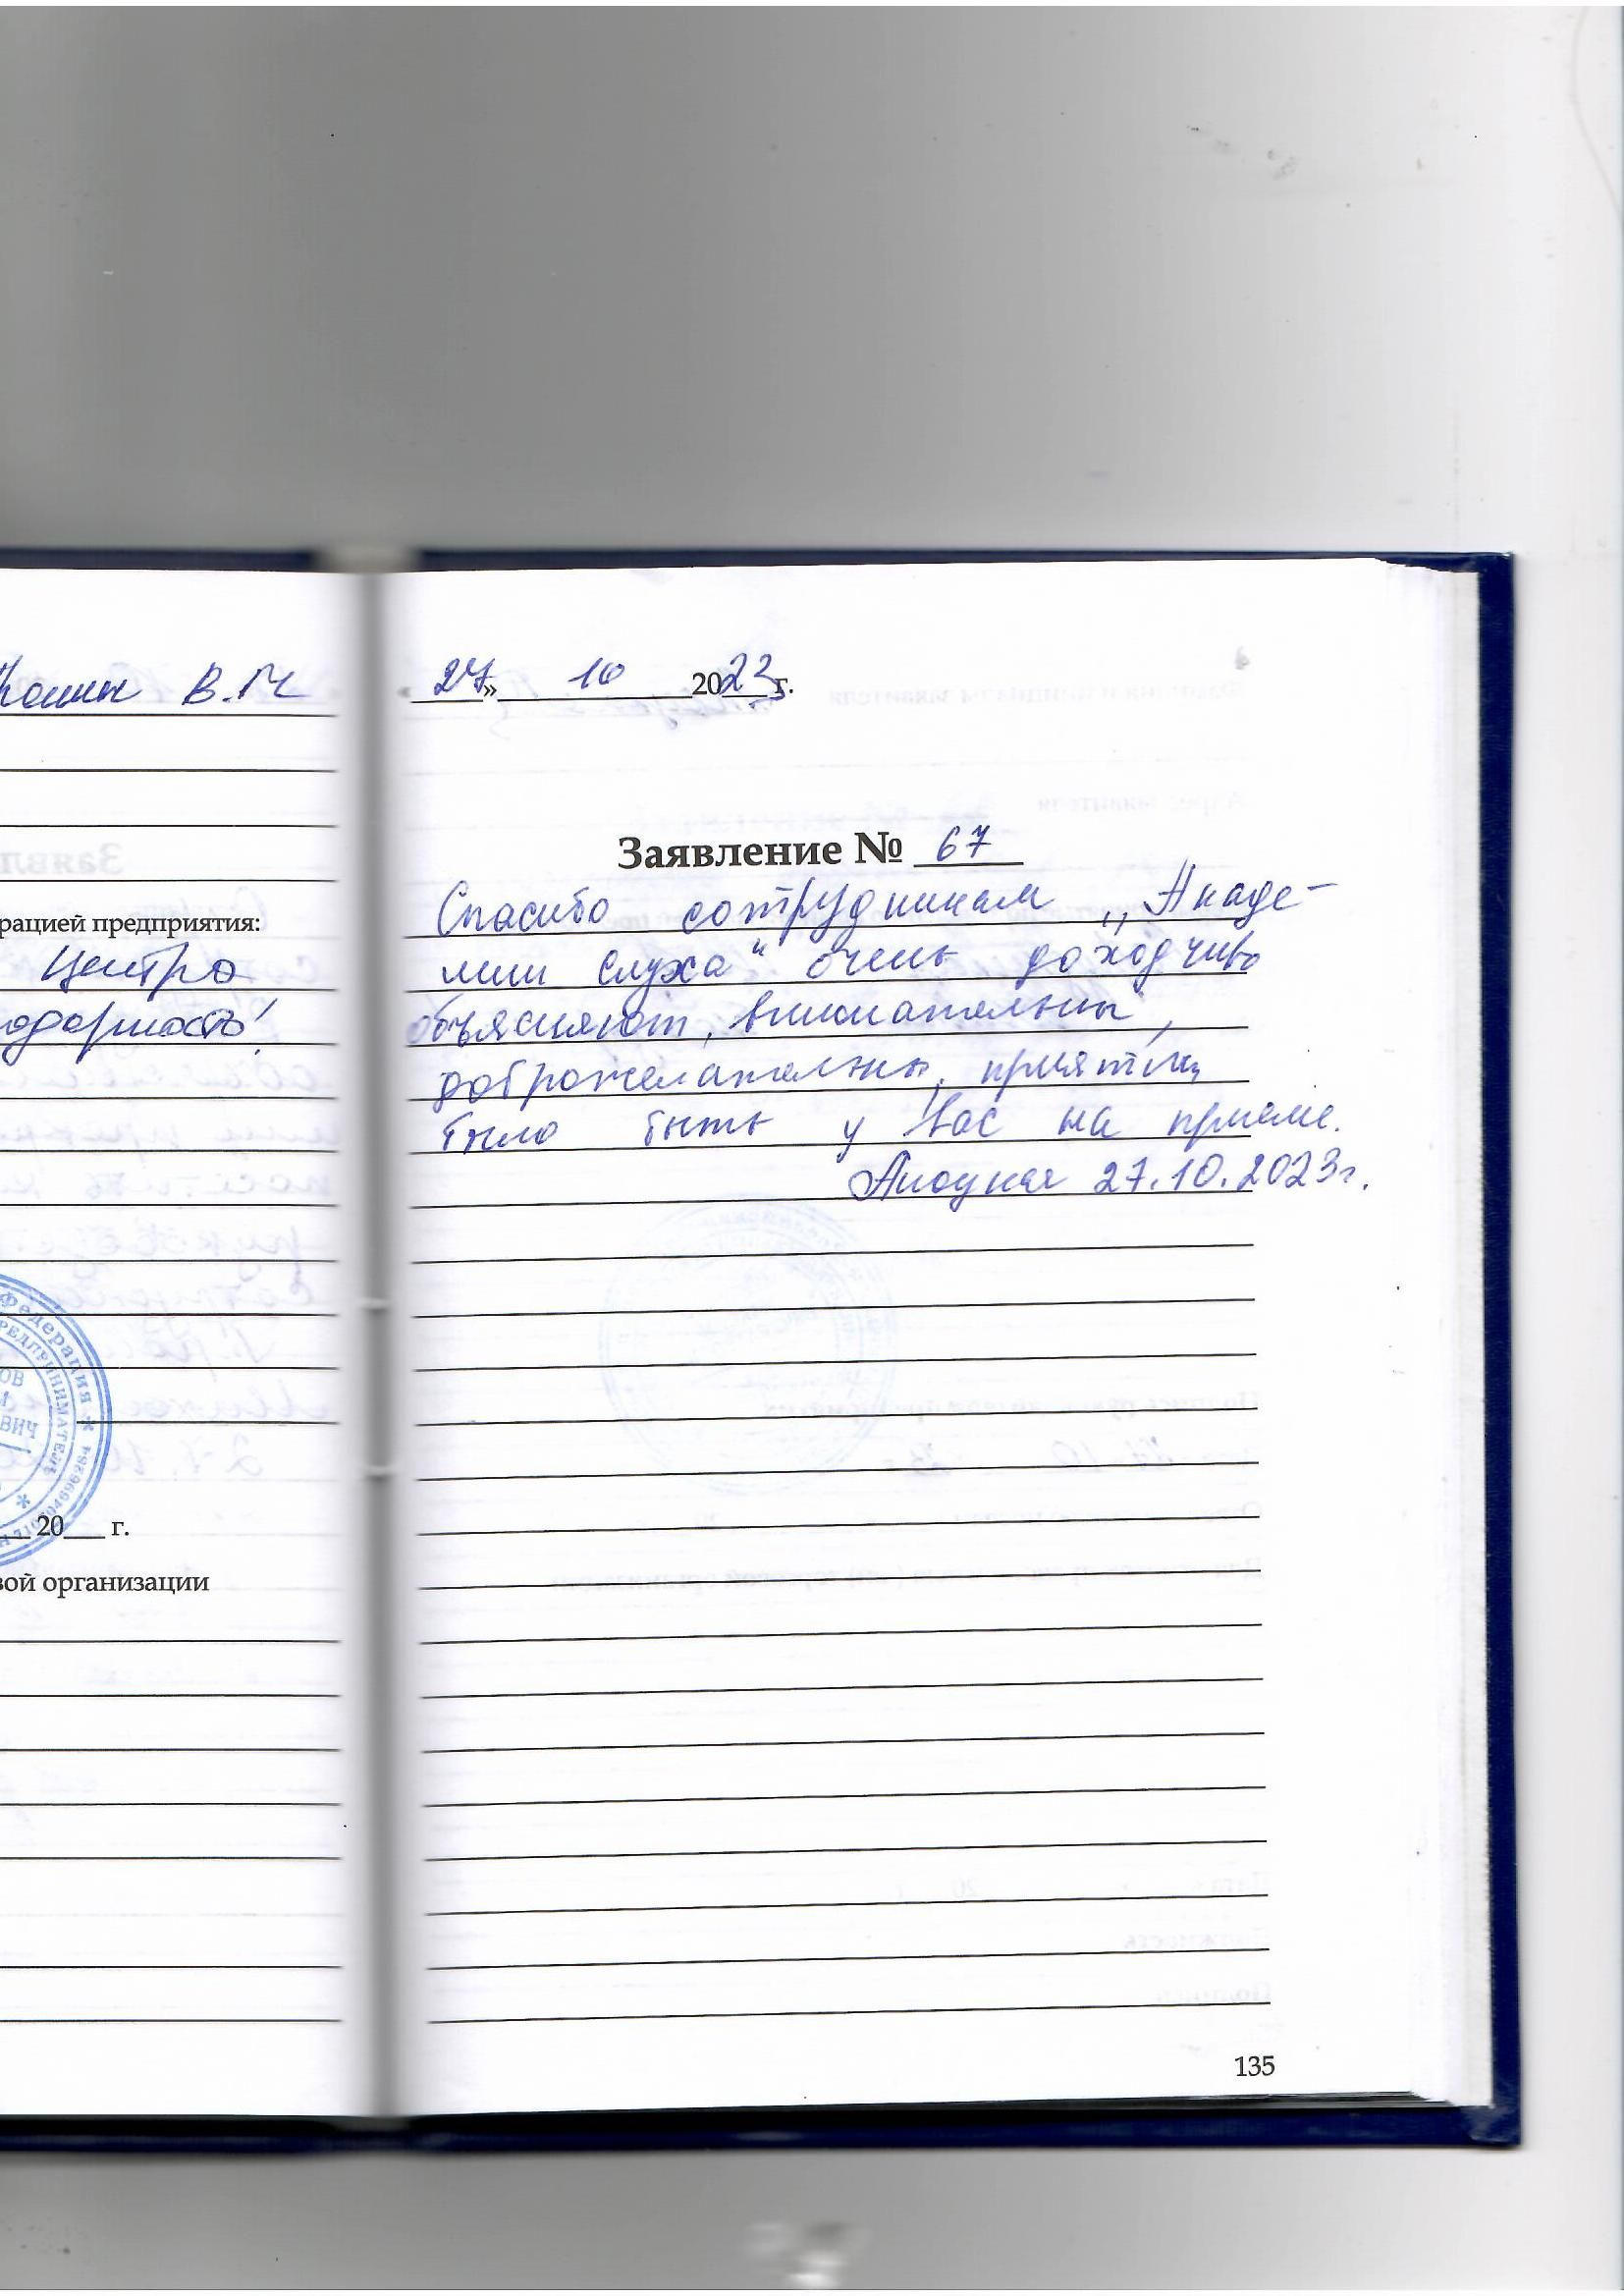 В.М
рацией предприятия:
Центра
одарность!
Федерация
ОВ
ВИЧ
20___ г.
вой организации
« 27 » 10 2023 г.
Заявление № 67
Спасибо сотрудникам „Акаде-
мии слуха“ очень доходчиво
объясняют, внимательны,
доброжелательны, приятно
было быть у Вас на приеме.
27.10.2023г.
135